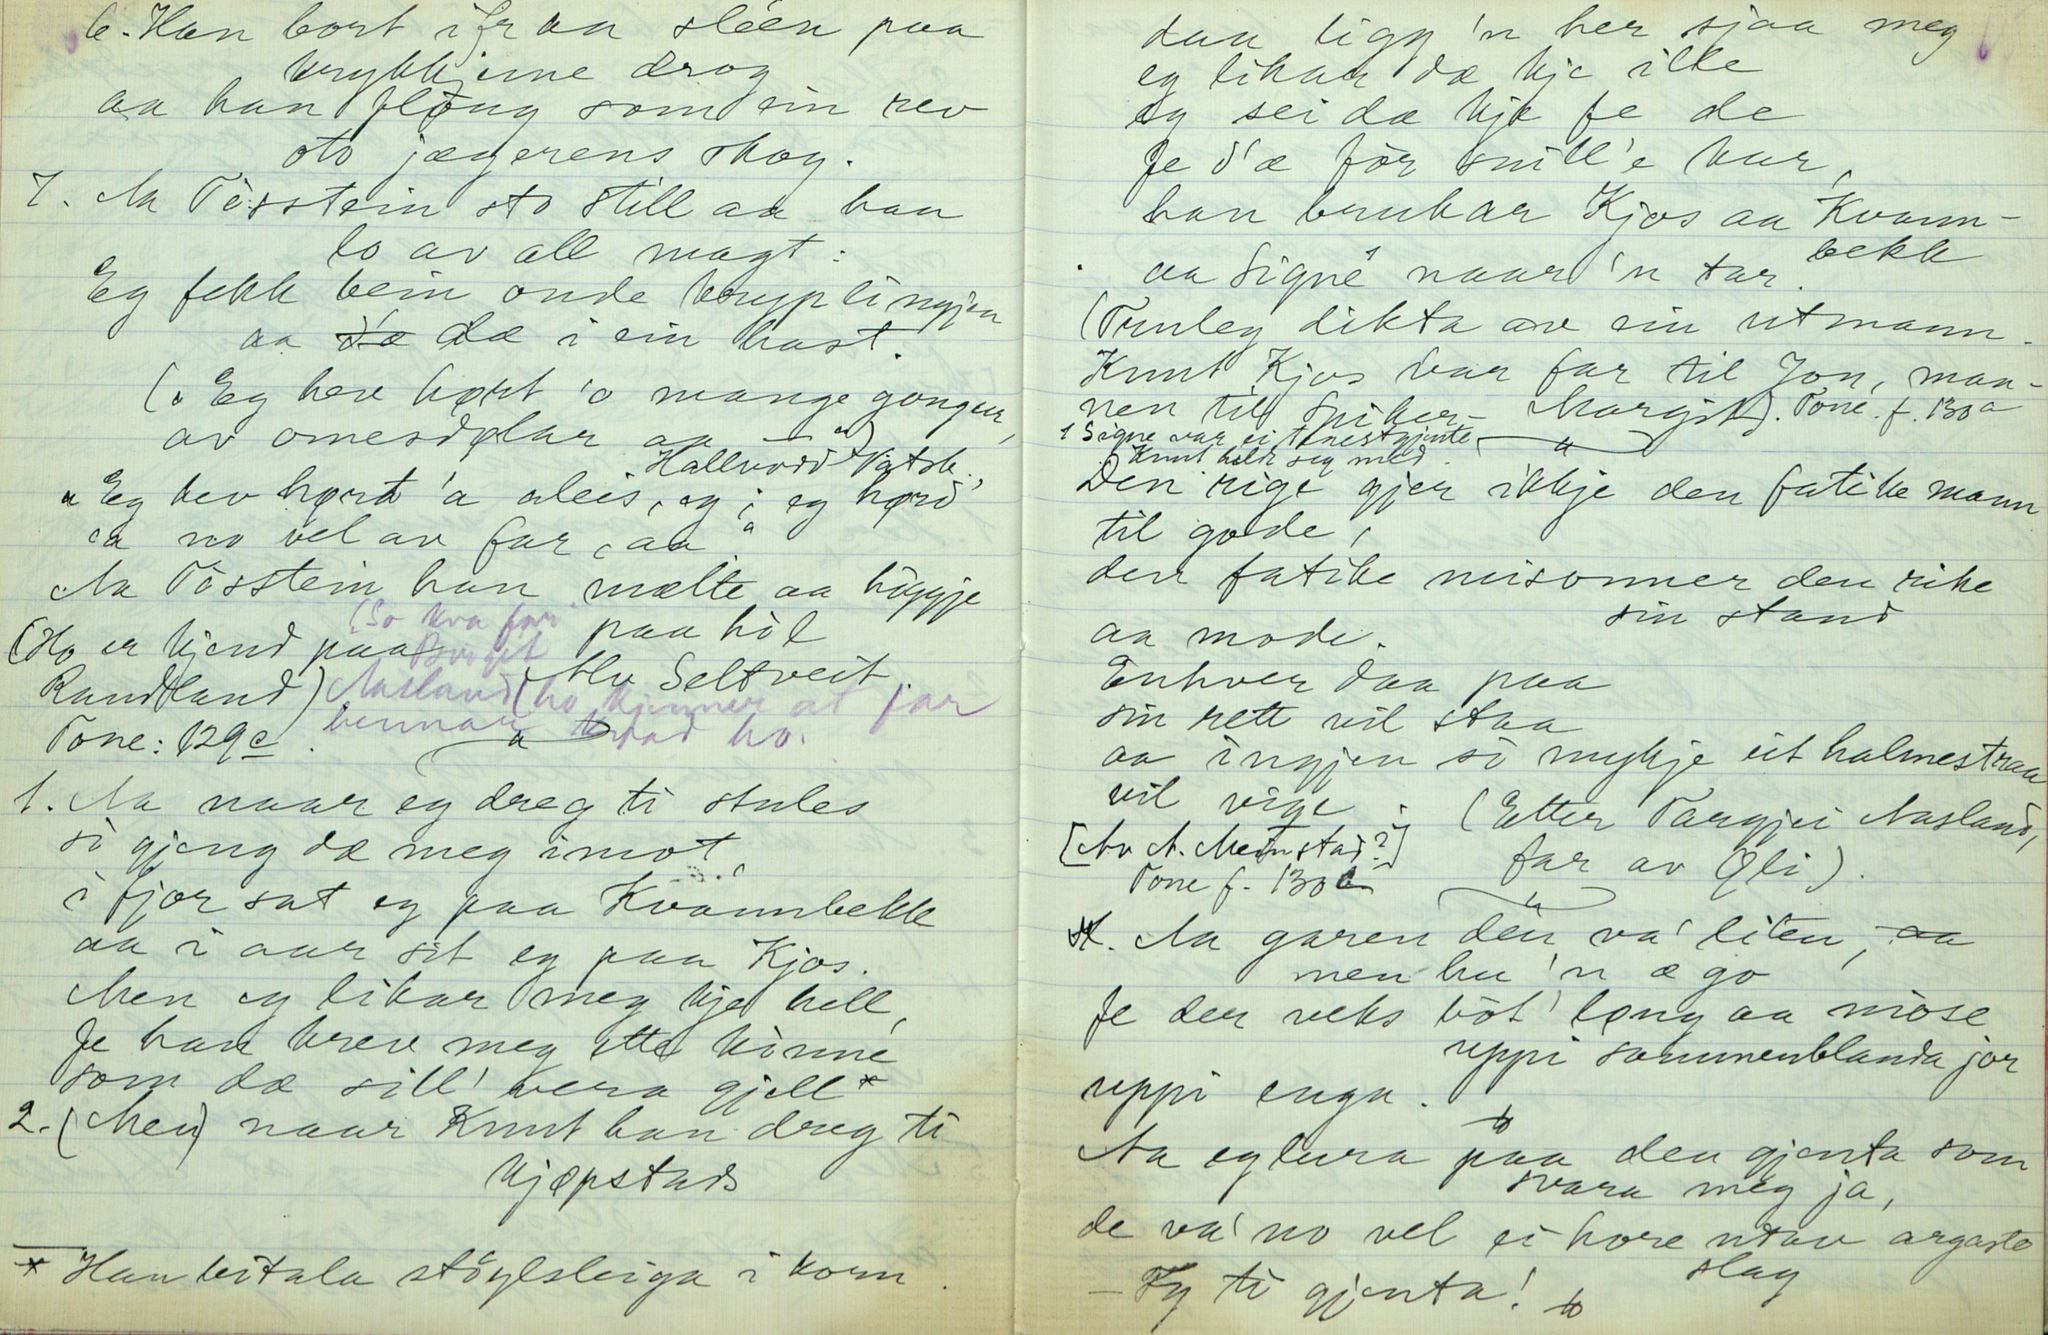 6. Han bort ifraa sléen paa
krykkjune drog
aa han fløug som ein rev
oto jægerens skog.
7. Aa Tòsstein sto still aa han
lo av all magt:
Eg fekk bein onde kryplingjen
aa dæ i ein hast.
(„Eg heve hørt 'o mange gonger,
av omesdølar aa — “)
Hallvord Vatsh.
„Eg hev hørt 'a aleis, eg; eg hørd'
'a no vel av far, aa“
Aa Tòsstein han mælte aa höggje
paa hòl
(So kva far
(Ho er kjend paa
Birgit
Av Seltveit.
Randtland)
Aasland (ho kjenner at far
hennar kvad ho.
Tone: 129c.
1. Aa naar eg dreg ti stules
sò gjeng dæ meg imot,
i fjor sat eg paa Kvannbekk
aa i aar sit eg paa Kjos.
Men eg likar meg kje hell,
fe han krev meg ette kònne
som dæ sill' vera gjell *
2. (Men) naar Knut han dreg ti
kjøpstads
* Han bitala stöylsleiga i korn.
daa ligg 'n her sjaa meg
eg likar dæ kje ille
eg sei dæ kje fe de
fe d'æ för snill'e kar,
han brukar Kjos aa Kvann-
bekk
aa Signe¹ naar 'n tar.
(Truleg dikta av ein utmann.
Knut Kjos var far til Jon, man-
nen til Spiker-Margit). Tone f. 130a
1 Signe var ei tenestgjente
Knut heldt seg med.
Den rige gjer ikkje den fatike mann
til gode,
den fatike misonner den rike
sin stand
aa mode.
Enhver daa paa
sin rett vil staa
aa ingjen sò mykje eit halmestraa
vil vige.
(Etter Targjei Aasland,
far av Øli).
[Av A. Meinstad?]
Tone f. 130b
Aa garen den va' liten, aa
men hu 'n æ go
fe der veks bòt' løng aa mòse
uppi sammenblanda jor
uppi enga.
Aa eg lura paa den gjenta som
svara meg ja,
de va' no vel ei hore utav argaste
slag
— Fy ti gjenta!